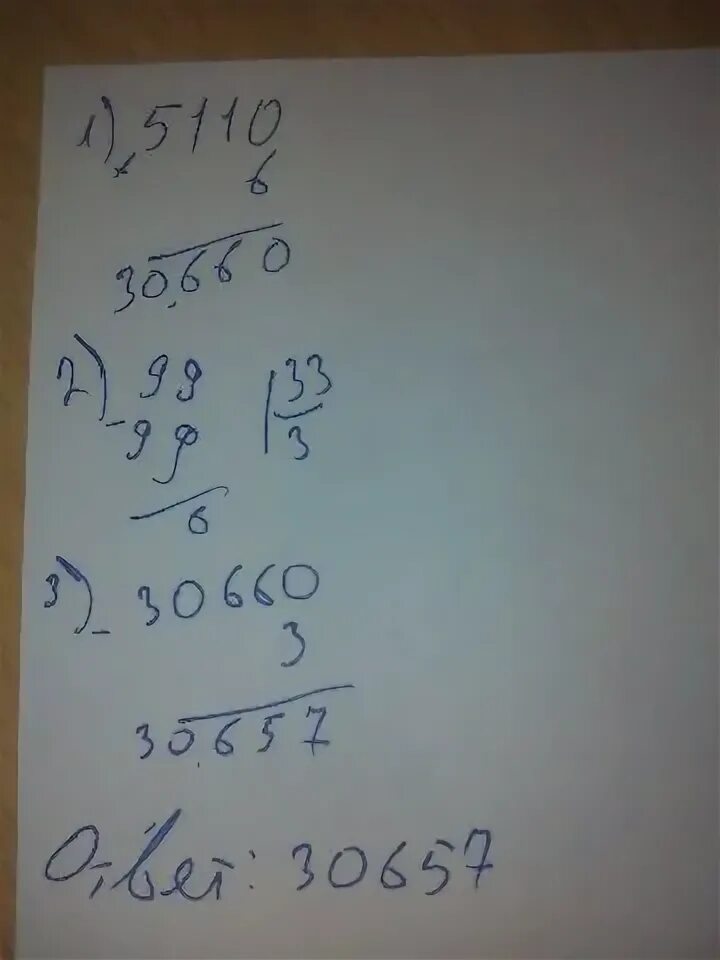 1) 5110
× 6
30660
2) 99 | 33
- 99 3
0
3) 30660
- 3
30657
Ответ: 30657